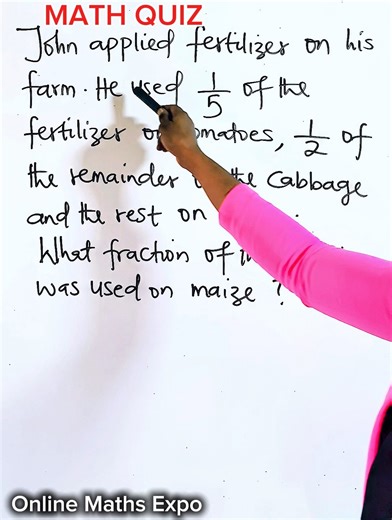 MATH QUIZ
John applied fertilizer on his
farm. He used 1/5 of the
fertilizer tomatoes, 1/2 of
the remainder the cabbage
and the rest on
What fraction of
was used on maize ?
Online Maths Expo